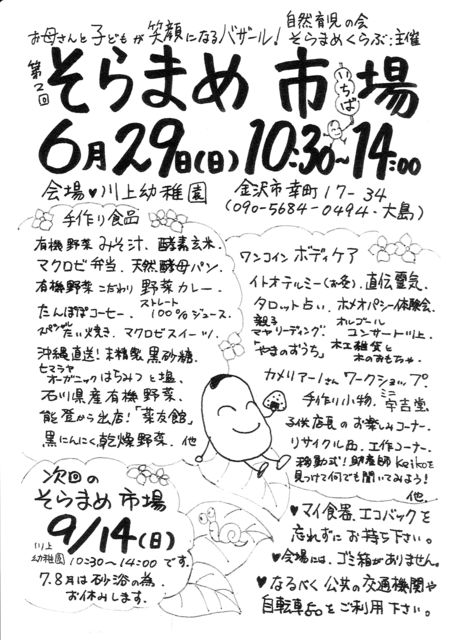 お母さんと子どもが笑顔になるバザール!
自然育児の会
そらまめくらぶ主催
第2回
そらまめ市場
いちば
6月29日(日)10:30~14:00
会場♥川上幼稚園
金沢市幸町17-34
(090-5684-0494・大島)
手作り食品
有機野菜みそ汁、酵素玄米、
マクロビ弁当、天然酵母パン、
有機野菜こだわり野菜カレー、
たんぽぽコーヒー、ストレート100%ジュース、
スペルトだい焼き、マクロビスイーツ、
沖縄直送!未精製黒砂糖、
ヒマラヤ
オーガニックはちみつと塩、
石川県産有機野菜、
能登から出店!「菜友館」
黒にんにく、乾燥野菜、他
ワンコインボディケア
イトオテルミー(お灸)、直伝靈気、
タロット占い、ホメオパシー体験会、
親子
マヤリーディング、
「やきのずうち」
オルゴール
コンサート川上、
木工雑貨と
木のおもちゃ、
カメリアーノさんワークショップ、
手作り小物、ミニ古書堂、
子供店長のお楽しみコーナー、
リサイクル品、工作コーナー、
移動式!助産師Keikoを
見つけて何でも聞いてみよう!
他
次回の
そらまめ市場
9/14(日)
川上
幼稚園10:30~14:00です。
7.8月は砂浴の為、
お休みします。
♥マイ食器、エコバックを
忘れずにお持ち下さい。
♥会場には、ゴミ箱がありません。
♥なるべく公共の交通機関や
自転車などをご利用下さい。